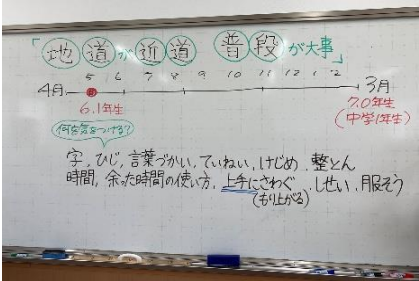 「地道が近道 普段が大事」
5 6 7 8 9 10 11 12 1 2
4月 3月
6.1年生 7.0年生
(中学1年生)
何を気をつける?
字, ひじ, 言葉づかい, ていねい, けじめ, 整とん
時間, 余った時間の使い方, 上手にさわぐ, しせい, 服そう
(もり上がる)